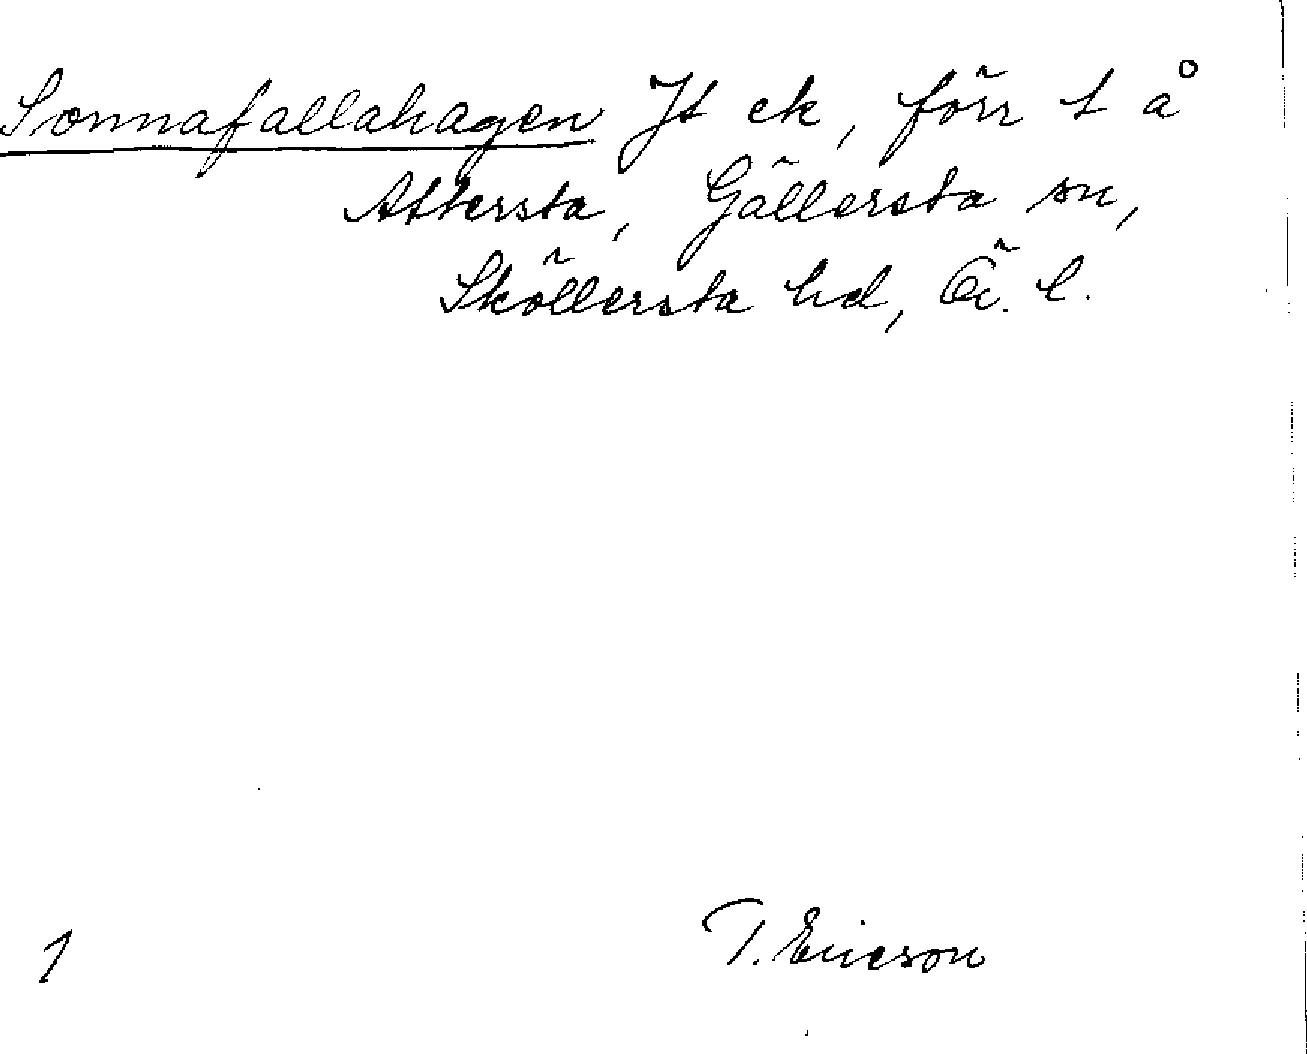 Sonnafallahagen Jt ek, förr t å
Attersta, Gällersta sn,
Sköllersta hd, Ör. l.
1
T. Ericson